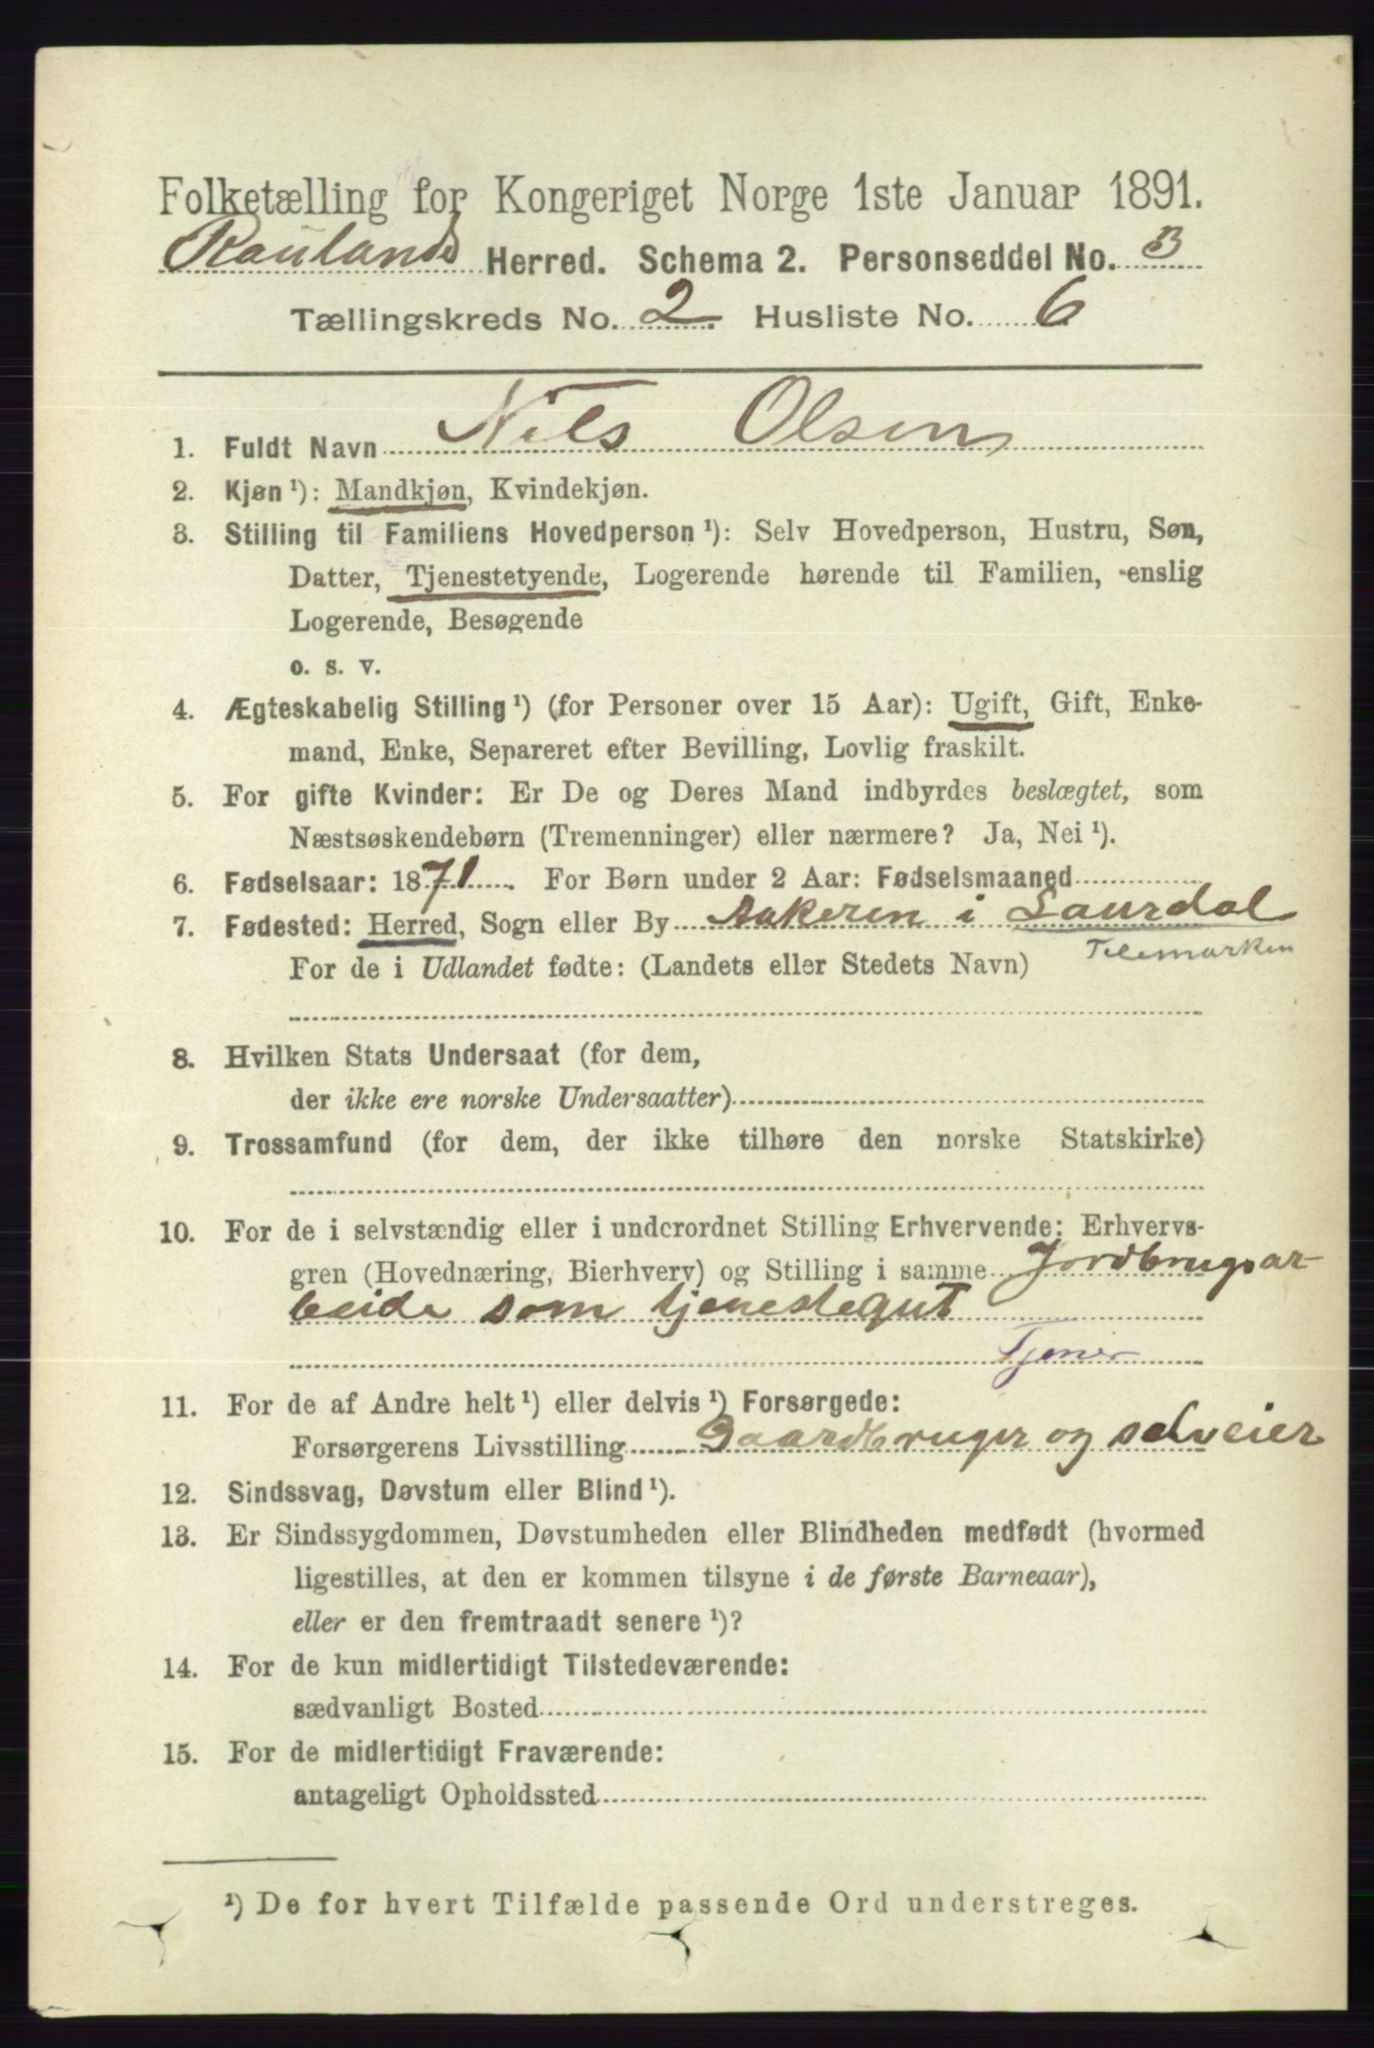 Folketælling for Kongeriget Norge 1ste Januar 1891.
Raulands Herred. Schema 2. Personseddel No. 3
Tællingskreds No. 2. Husliste No. 6
1. Fuldt Navn Nils Olsen
2. Kjøn ¹): Mandkjøn, Kvindekjøn.
3. Stilling til Familiens Hovedperson ¹): Selv Hovedperson, Hustru, Søn,
Datter, Tjenestetyende, Logerende hørende til Familien, enslig
Logerende, Besøgende
o. s. v.
4. Ægteskabelig Stilling ¹) (for Personer over 15 Aar): Ugift, Gift, Enke-
mand, Enke, Separeret efter Bevilling, Lovlig fraskilt.
5. For gifte Kvinder: Er De og Deres Mand indbyrdes beslægtet, som
Næstsøskendebørn (Tremenninger) eller nærmere? Ja, Nei ¹).
6. Fødselsaar: 1871. For Børn under 2 Aar: Fødselsmaaned
7. Fødested: Herred, Sogn eller By Aakeren i Laurdal
Telemarken
For de i Udlandet fødte: (Landets eller Stedets Navn)
8. Hvilken Stats Undersaat (for dem,
der ikke ere norske Undersaatter)
9. Trossamfund (for dem, der ikke tilhøre den norske Statskirke)
10. For de i selvstændig eller i underordnet Stilling Erhvervende: Erhvervs-
gren (Hovednæring, Bierhverv) og Stilling i samme Jordbrugsar-
beide som tjenestegut
Tjener
11. For de af Andre helt ¹) eller delvis ¹) Forsørgede:
Forsørgerens Livsstilling Gaardbruger og selveier
12. Sindssvag, Døvstum eller Blind ¹).
13. Er Sindssygdommen, Døvstumheden eller Blindheden medfødt (hvormed
ligestilles, at den er kommen tilsyne i de første Barneaar),
eller er den fremtraadt senere ¹)?
14. For de kun midlertidigt Tilstedeværende:
sædvanligt Bosted
15. For de midlertidigt Fraværende:
antageligt Opholdssted
¹) De for hvert Tilfælde passende Ord understreges.